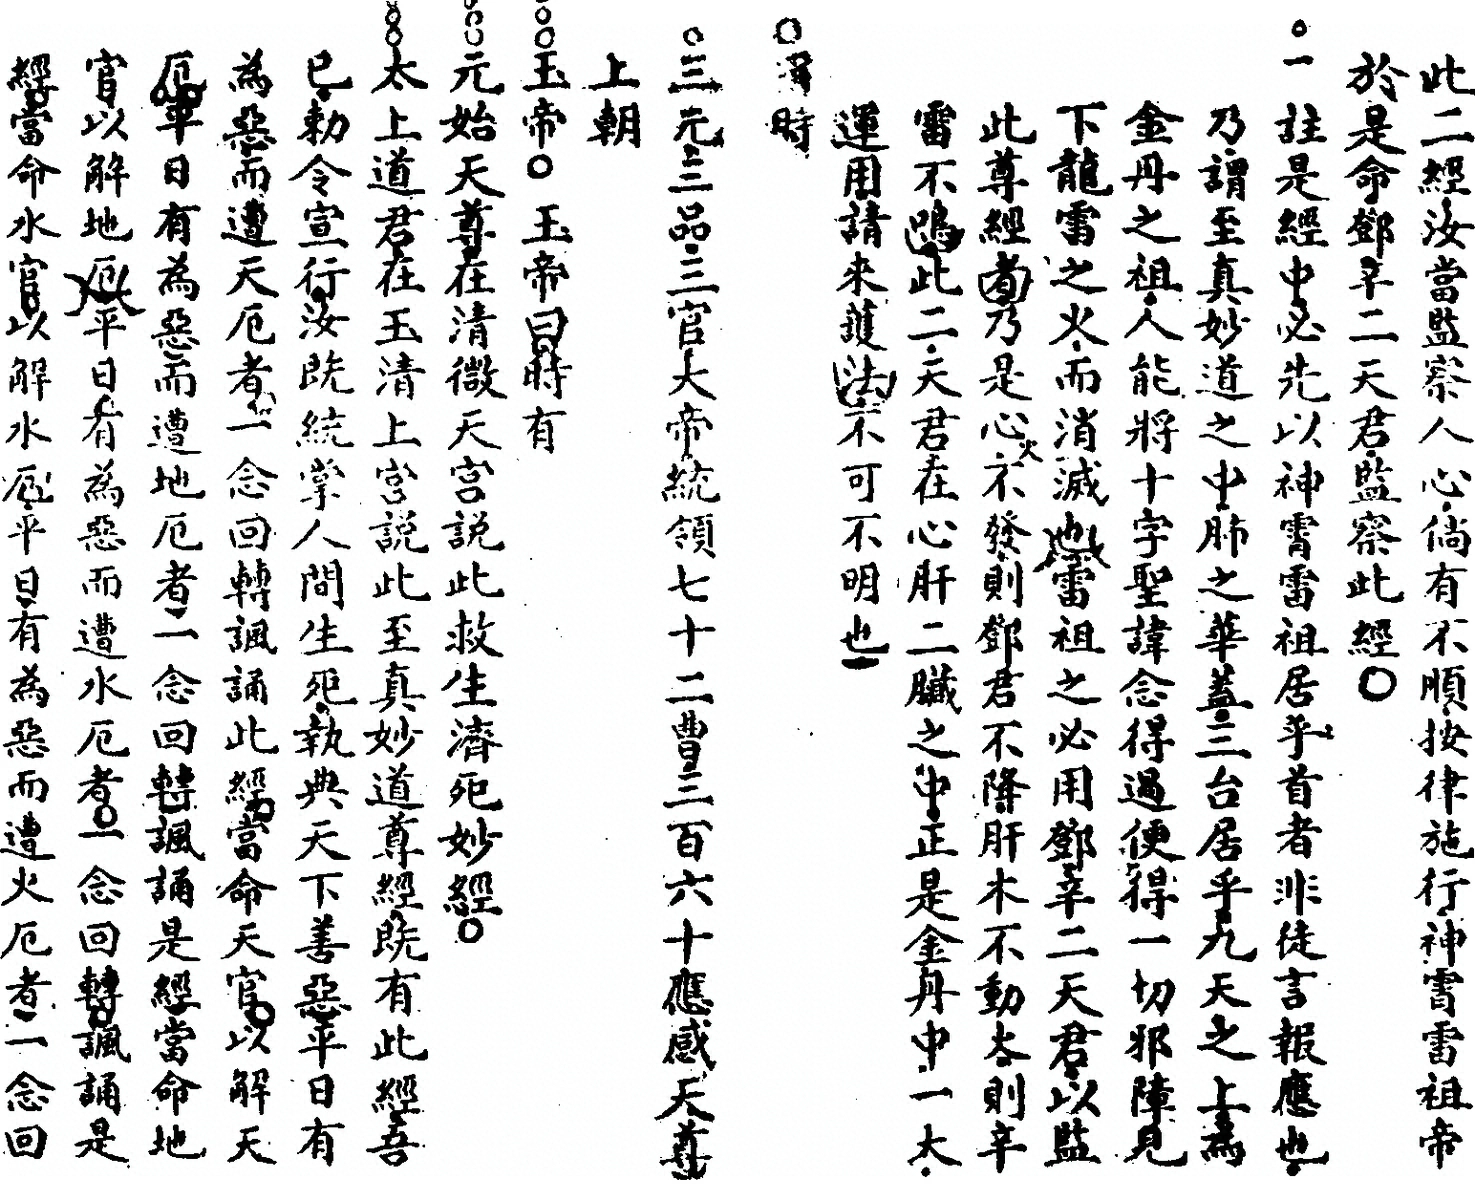 此二經汝當監察人心倘有不順按律施行神霄雷祖帝
於是命鄧辛二天君監察此經〇
〇一註是經中必先以神霄雷祖居乎首者非徒言報應也
乃謂至真妙道之中肺之華蓋三台居乎九天之上為
金丹之祖人能將十字聖諱念得過便得一切邪障見
下龍雷之火而消滅也雷祖之必用鄧辛二天君以監
此尊經者乃是心火不發則鄧君不降肝木不動則辛
雷不鳴此二天君在心肝二臟之中正是金丹中一大
運用請來護法不可不明也
〇 時
〇三元三品三官大帝統領七十二曹三百六十應感天尊
上朝
〇〇〇玉帝〇玉帝曰時有
〇〇〇元始天尊在清微天宮說此救生濟死妙經〇
〇〇太上道君在玉清上宮說此至真妙道尊經既有此經吾
已勅令宣行汝既統掌人間生死執典天下善惡平日有
為惡而遭天厄者一念回轉諷誦此經當命天官以解天
厄平日有為惡而遭地厄者一念回轉諷誦是經當命地
官以解地厄平日有為惡而遭水厄者一念回轉諷誦是
經當命水官以解水厄平日有為惡而遭火厄者一念回